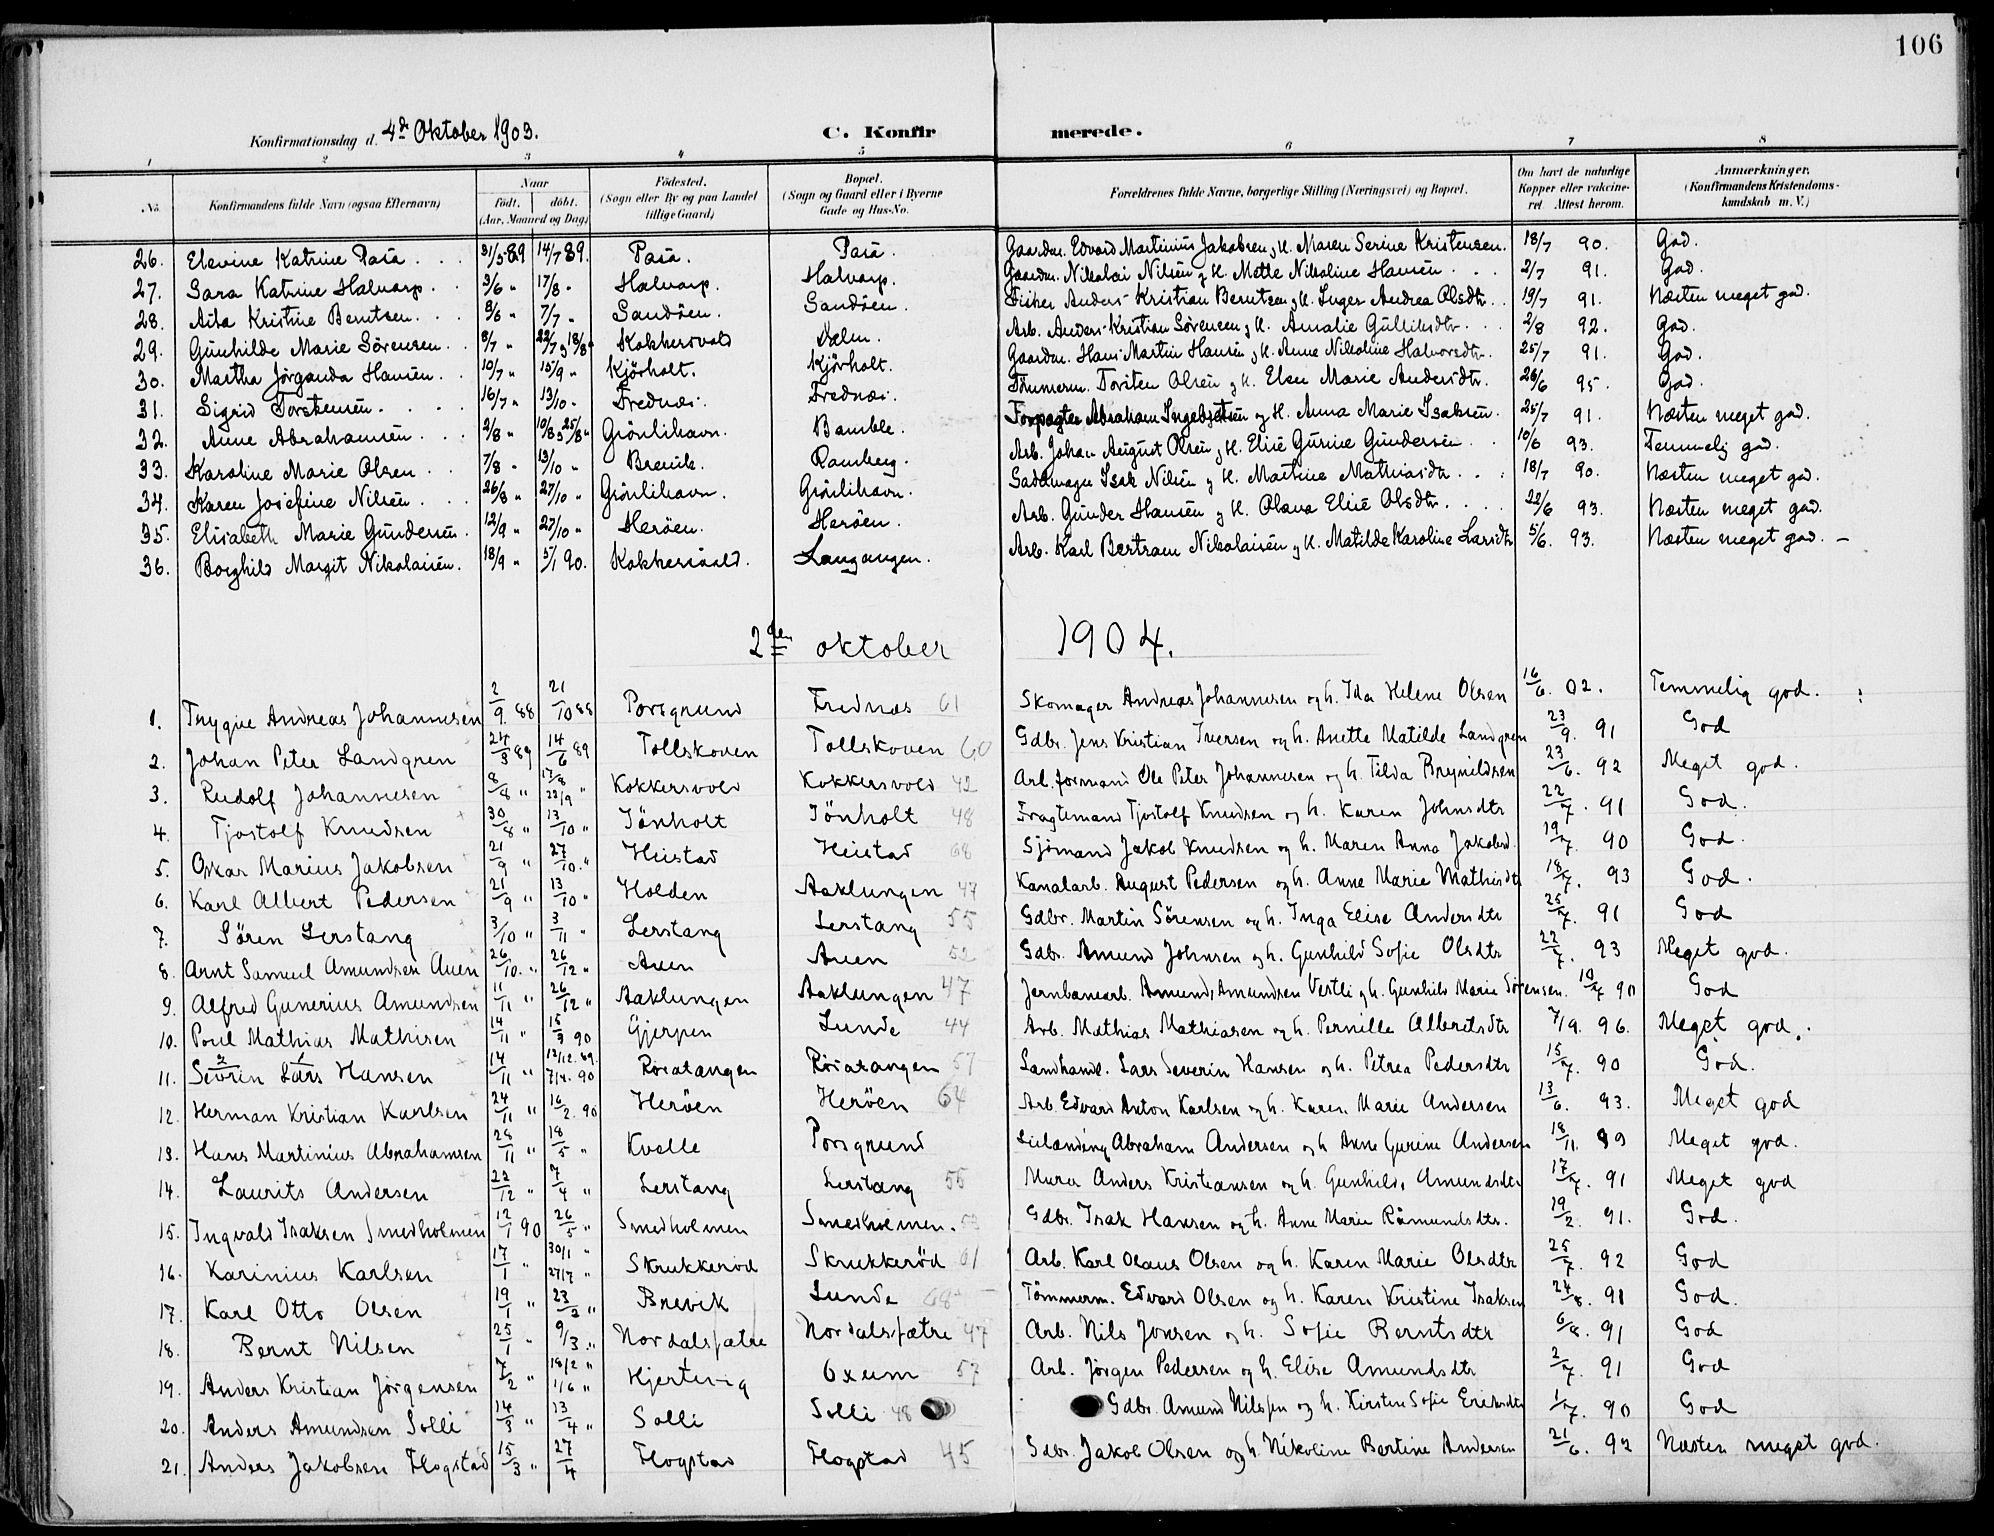 106
Konfirmationsdag d. 4de Oktober 1903. C. Konfirmerede.
1 2 3 4 5 6 7 8
No. Konfirmandens fulde Navn (ogsaa Efternavn) Naar født. døbt. (Aar, Maaned og Dag) Fødested. (Sogn eller By og paa Landet tillige Gaard) Bopæl. (Sogn og Gaard eller i Byerne Gade og Hus-No. Forældrenes fulde Navne, borgerlige Stilling (Næringsvei) og Bopæl. Om havt de naturlige Kopper eller vakcineret Attest herom. Anmærkninger. (Konfirmandens Kristendomskundskab m. V.)
26. Elevine Katrine Pasa 31/5 89 14/7 89. Pasa. Pasa. Gaardm. Edvard Martinius Jakobsen og H. Maren Serine Kristensen. 18/7 90. God.
27. Sara Katrine Halvarp. 3/6 " 17/8 " Halvarp. Halvarp. Gaardm. Nikolai Nilsen og H. Mette Nikoline Hansen 2/7 91. God.
28. Kristine Berntsen. 3/6 " 7/7 " Sandöen. Sandöen. Fisker Anders Kristian Berntsen og H. Inger Andrea Olsdtr. 19/7 91. Næsten meget god.
29. Gunhilde Marie Sörensen 8/7 " Kokkersvold Arb. Anders Kristian Sörensen og H. Amalie Gulliksdtr. 2/8 92. God.
30. Martha Jörganda Hansen. 10/7 " 15/9 " Kjörholt. Kjörholt. Gaardm. Hans Martin Hansen og H. Anne Nikoline Halvorsdtr. 25/7 91. God.
31. Sigrid Torstensen. 16/7 " 13/10 " Frednæs. Frednæs. Tömmerm. Torsten Olsen og H. Elen Marie Andersdtr. 26/6 95. God.
32. Anne Abrahamsen 2/8 " 10/8 25/8 " Grönlihavn. Bamble. Forpagter Abraham Ingebretsen og H. Anna Marie Isaksen. 25/7 91. Næsten meget god.
33. Karoline Marie Olsen 7/8 " 13/10 " Brevik. Ramberg. Arb. Johan August Olsen og H. Elise Gurine Gundersen 10/6 93. Temmelig god.
34. Karen Josefine Nilsen. 26/8 " 27/10 " Grönlihavn. Grönlihavn. Sadelmager Isak Nilsen og H. Martine Mathiasdtr. 18/7 90. Næsten meget god.
35. Elisabeth Marie Gundersen. 12/9 " 27/10 " Heröen. Heröen. Arb. Gunder Hansen og H. Olava Elise Olsdtr. 22/6 93. Næsten meget god.
36. Borghild Margit Nikolaisen. 18/9 " 5/1 90. Kokkersvold. Langangen. Arb. Karl Bertram Nikolaisen og H. Matilde Karoline Larsdtr 5/6. 93. Næsten meget god. –
2den oktober 1904.
1. Trygve Andreas Johannesen 2/9. 88 21/10 88 Porsgrund Frednæs 61 Skomager Andreas Johannesen og h. Ida Helene Olsen 16/6. 02. Temmelig god.
2. Johan Peter Landgren 24/3 89 14/6 89 Tollskoven Tollskoven 60 Gdbr. Jens Kristian Iversen og h. Anette Matilde Landgren 23/9. 91 God
3. Rudolf Johannesen 8/8 " 17/8 22/9 " Kokkersvold Kokkersvold 42 Arb. formand Ole Peter Johannesen og h. Tilda Brynildsen 23/6. 92 Meget god.
4. Tjostolf Knudsen 30/8 " 13/10 " Tönholt Tönholt 48 Fragtemand Tjostolf Knudsen og h. Karen Johnsdtr 22/7. 91 God.
5. Oskar Marius Jakobsen 21/9 27/10. " Heistad Heistad 68 Sjömand Jakob Knudsen og h. Maren Anna Jakobsd. 19/7. 90 God.
6. Karl Albert Pedersen 21/9 " 13/10 " Holden Aaklungen 47 Kanalarb. August Pedersen og h. Anne Marie Mathisdtr 18/7. 93 God.
7. Sören Lerstang 3/10 " 3/11 " Lerstang Lerstang 55 Gdbr. Martin Sörensen og h. Inga Elise Andersdtr 25/7. 91 God
8. Arnt Samuel Amundsen Auen 26/10. " 26/12 " Auen Auen 52 Gdbr. Amund Johnsen og h. Gunhild Sofie Olsdtr 22/7. 93 Meget god.
9. Alfred Gunerius Amundsen 11/11 " 26/12 " Aaklungen Aaklungen 47 Jernbanearb. Amund Amundsen Vestli og h. Gunhild Marie Sörensen. 18/7 90 God
10. Poul Mathias Mathisen 14/11 " 15/3 90 Gjerpen Lunde 44 Arb. Mathias Mathiasen og h. Pernille Albretsdtr 7/9. 96. Meget god.
11. Sevrin Lars Hansen 14/11 " 12/12. 89. 7/4. 90 Röratangen Röratangen 57 Landhandl. Lars Severin Hansen og h. Petrea Pedersdtr 15/7. 90 God.
12. Herman Kristian Karlsen 24/11 " 16/2. 90 Heröen Heröen 64 Arb. Edvard Anton Karlsen og h. Karen Marie Andersen 13/6. 93. Meget god
13. Hans Martinius Abrahamsen 28/11 " 18/5 " Kvelle Porsgrund Abraham Andersen og h Anne Gurine Andersen 18/11. 89 Meget god.
14. Laurits Andersen 22/12 " 7/4 " Lerstang Lerstang 55 Murer Anders Kristiansen og h. Gunhild Amundsdtr 17/7. 91 Meget god
15. Ingvald Isaksen Smedholmen 12/1 90 26/5 " Smedholmen Smedholmen. 53 Gdbr. Isak Hansen og h. Anne Marie Råmundsdtr. 19/2. 91. God.
16. Karinius Karlsen 17/1 " 30/1 " 27/7 " Skrukkeröd Skrukkeröd 61 Arb. Karl Olaus Olsen og h. Karen Marie Olsdtr 25/7. 92 God
17. Karl Otto Olsen 19/1 " 23/3 " Brevik Lunde 68 Tömmerm. Edvard Olsen og h. Karen Kristine Isaksen 24/8. 91 God.
18. Bernt Nilsen 25/1 " 9/3 " Nordalsfætre Nordalsfætre 47 Arb. Nils Jonsen og h. Sofie Berntsdtr 6/8. 91 God
19. Anders Kristian Jörgensen 7/2 " 18/2 " 1/6 " Hjertvig Oxum 57 Arb. Jörgen Pedersen og h. Elise Amundsdtr 2/7. 91 God
20. Anders Amundsen Solli 14/3 " 13/4 " Solli Solli 48 Gdbr. Amund Nilssen og h. Kirsten Sofie Eriksdtr 1/7. 90 God
21. Anders Jakobsen Flogstad 15/3 " 27/4 Flogstad Flogstad 45 Gdbr. Jakob Olsen og h. Nikoline Bertine Andersen 21/6. 92 Næsten meget god.